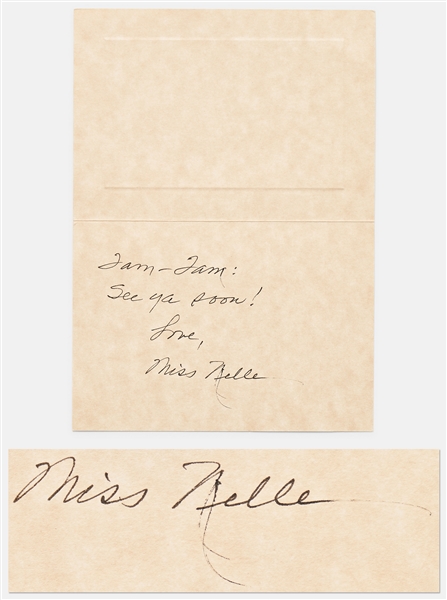 Tam-Tam:
See ya soon!
Love,
Miss Nelle
Miss Nelle